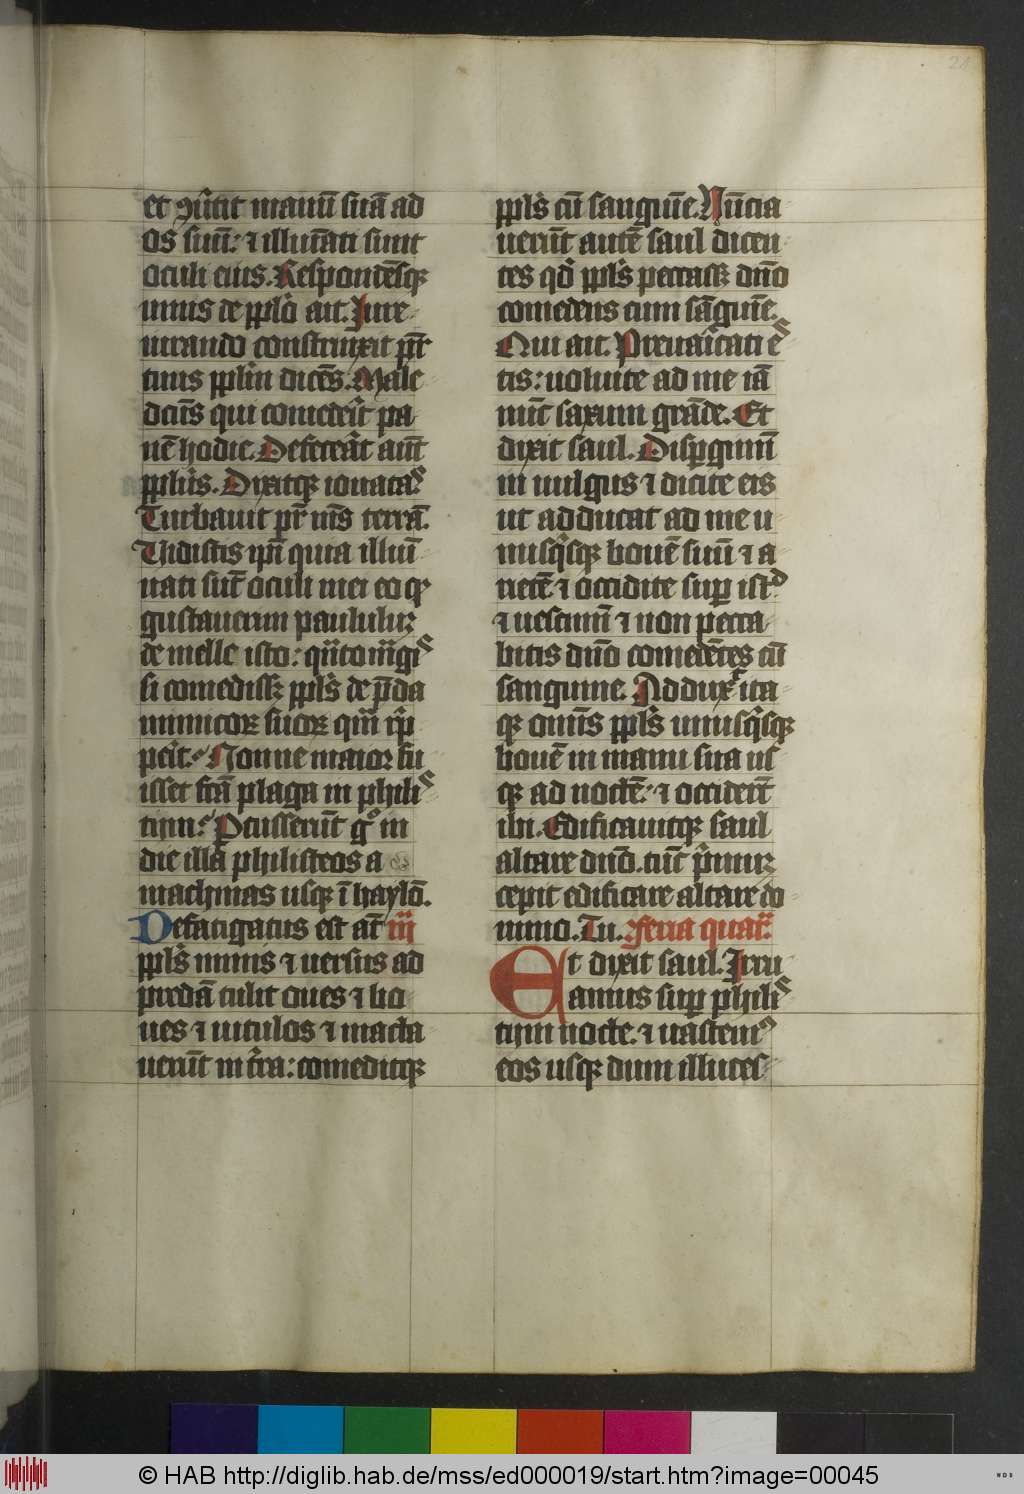 et ꝯu͛tit manū suā ad
os suū: ⁊ illuīati sunt
oculi eius. Respondēsqꝫ
unus de ppl̓o ait. Jure
iurando constrinxit pr̄
tuus ppl̓m dicēs. Male
dc̄us qui comeder̄it pa
nē hodie. Defecer̄at aūt
ppl̓us. Dixitqꝫ ionatas
Turbauit pr̄ mūs terrā.
Uidistis ip̄i quia illuī
nati sūt oculi mei eo qꝫ
gustauerim paululuꝫ
de melle isto: qn̄to mag̓s
si comedissꝫ ppl̓s de p̄da
inimicoꝝ suoꝝ quā rep̄
perit. Nonne maior fu
isset fc̄ā plaga in phili
tiim. Pcusserūt gᵒ in
die illa philisteos a
machmas usqꝫ ī haylō.
Defatigatus est aūt iij
ppl̓s nimis ⁊ uersus ad
predā tulit oues ⁊ bo
ues ⁊ uitulos ⁊ macta
uerūt in t̓ra: comeditqꝫ
ppl̓s cū sanguīe. Nūcia
uerūt autē saul dicen
tes qd̓ ppl̓s peccassꝫ dn̄o
comedens cum sāguīe.
Qui ait. Preuaricati es
tis: uoluite ad me iā
nūc saxum grāde. Et
dixit saul. Dispgimī
in uulgus ⁊ dicite eis
ut adducat ad me u
nusqͥsqꝫ bouē suū ⁊ a
rietē ⁊ occidite sup istᵈ
⁊ uescimī ⁊ non pecca
bitis dn̄o comedētes cū
sanguine. Adduxᵗ ita
qꝫ omīs ppl̓s unusqͥsqꝫ
bouē in manu sua us
qꝫ ad noctē: ⁊ occider̄t
ibi. Edificauitqꝫ saul
altare dn̄o. tūc p̓muꝫ
cepit edificare altare do
mino. Tu. feria quar̄.
Et dixit saul. Jrru
amus sup phili
tiim nocte. ⁊ uastemꝰ
eos usqꝫ dum illuces
© HAB http://diglib.hab.de/mss/ed000019/start.htm?image=00045